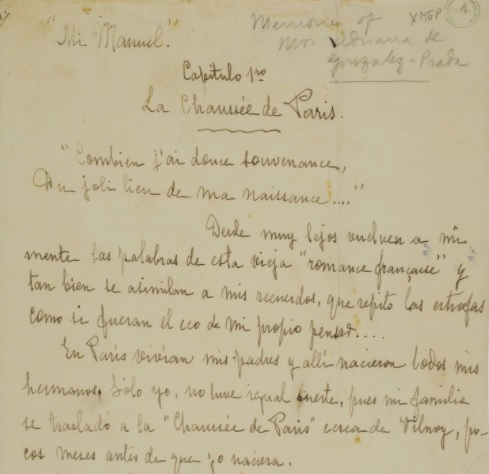 "Mi Manuel."
Memories of
Mrs Adriana de
Gonzalez-Prada
XMGP
1
Capítulo 1ro
La Chaussée de Paris.
"Combien j'ai douce souvenance,
Du joli lieu de ma naissance...."
Desde muy lejos vuelven a mi
mente las palabras de esta vieja "romance française" y
tan bien se asimilan a mis recuerdos, que repito las estrofas
como si fueran el eco de mi propio pensar....
En París vivían mis padres y allí nacieron todos mis
hermanos. Sólo yo, no tuve igual suerte, pues mi familia
se trasladó a la "Chaussée de Paris" cerca de
cos meses antes de que yo naciera.